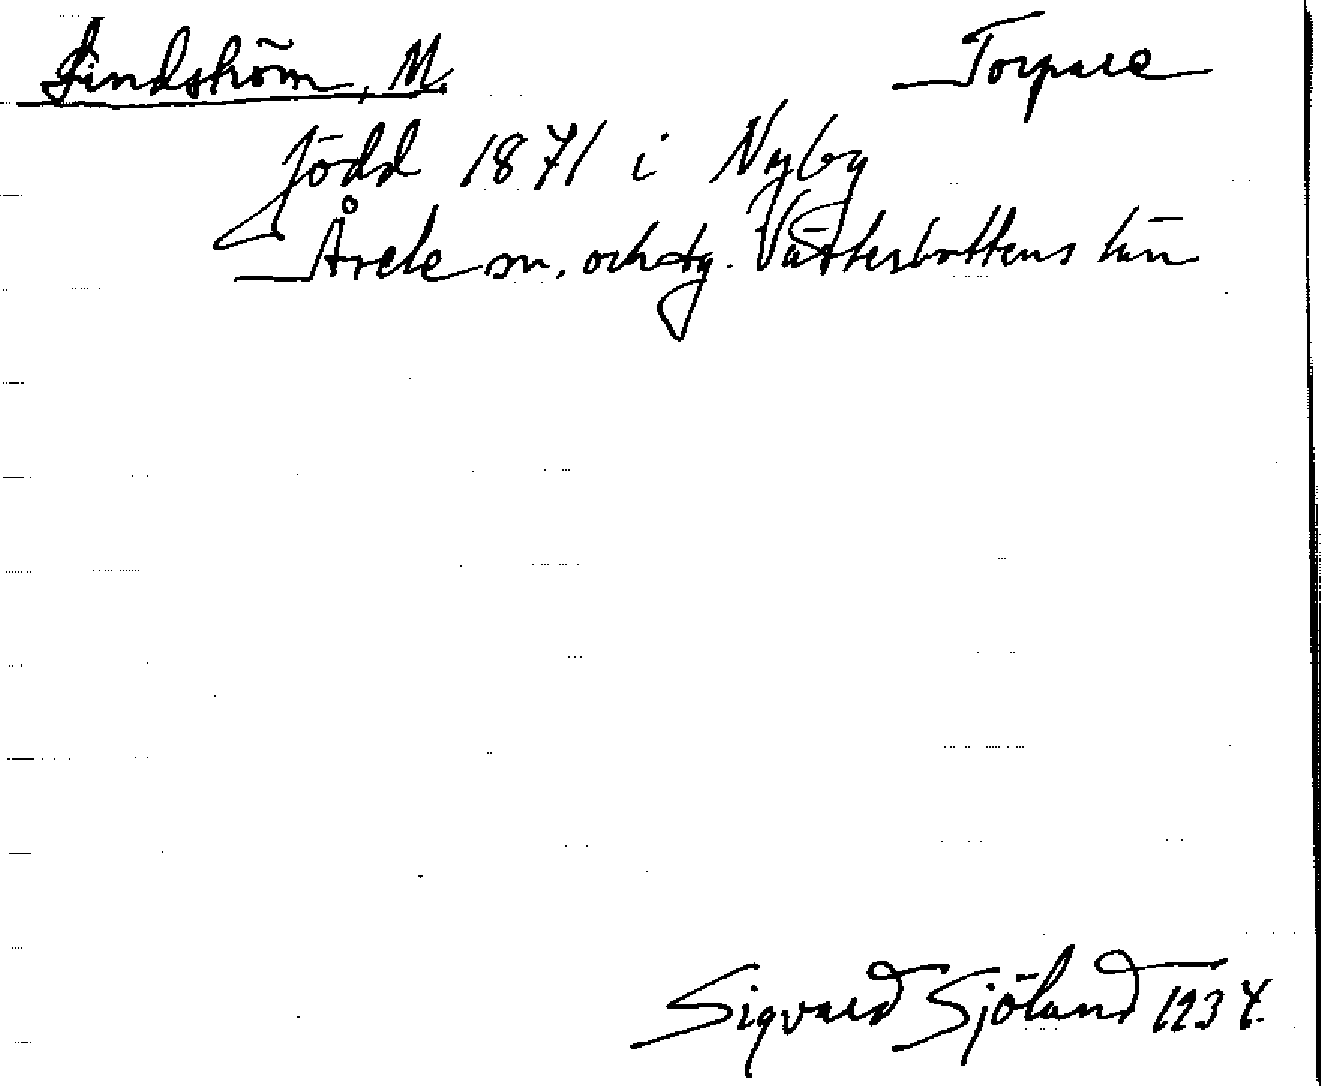 Lindström, M. Torpare
född 1871 i Nyby
Åsele sn. och tg. Västerbottens län
Sigvard Sjöland 1934.